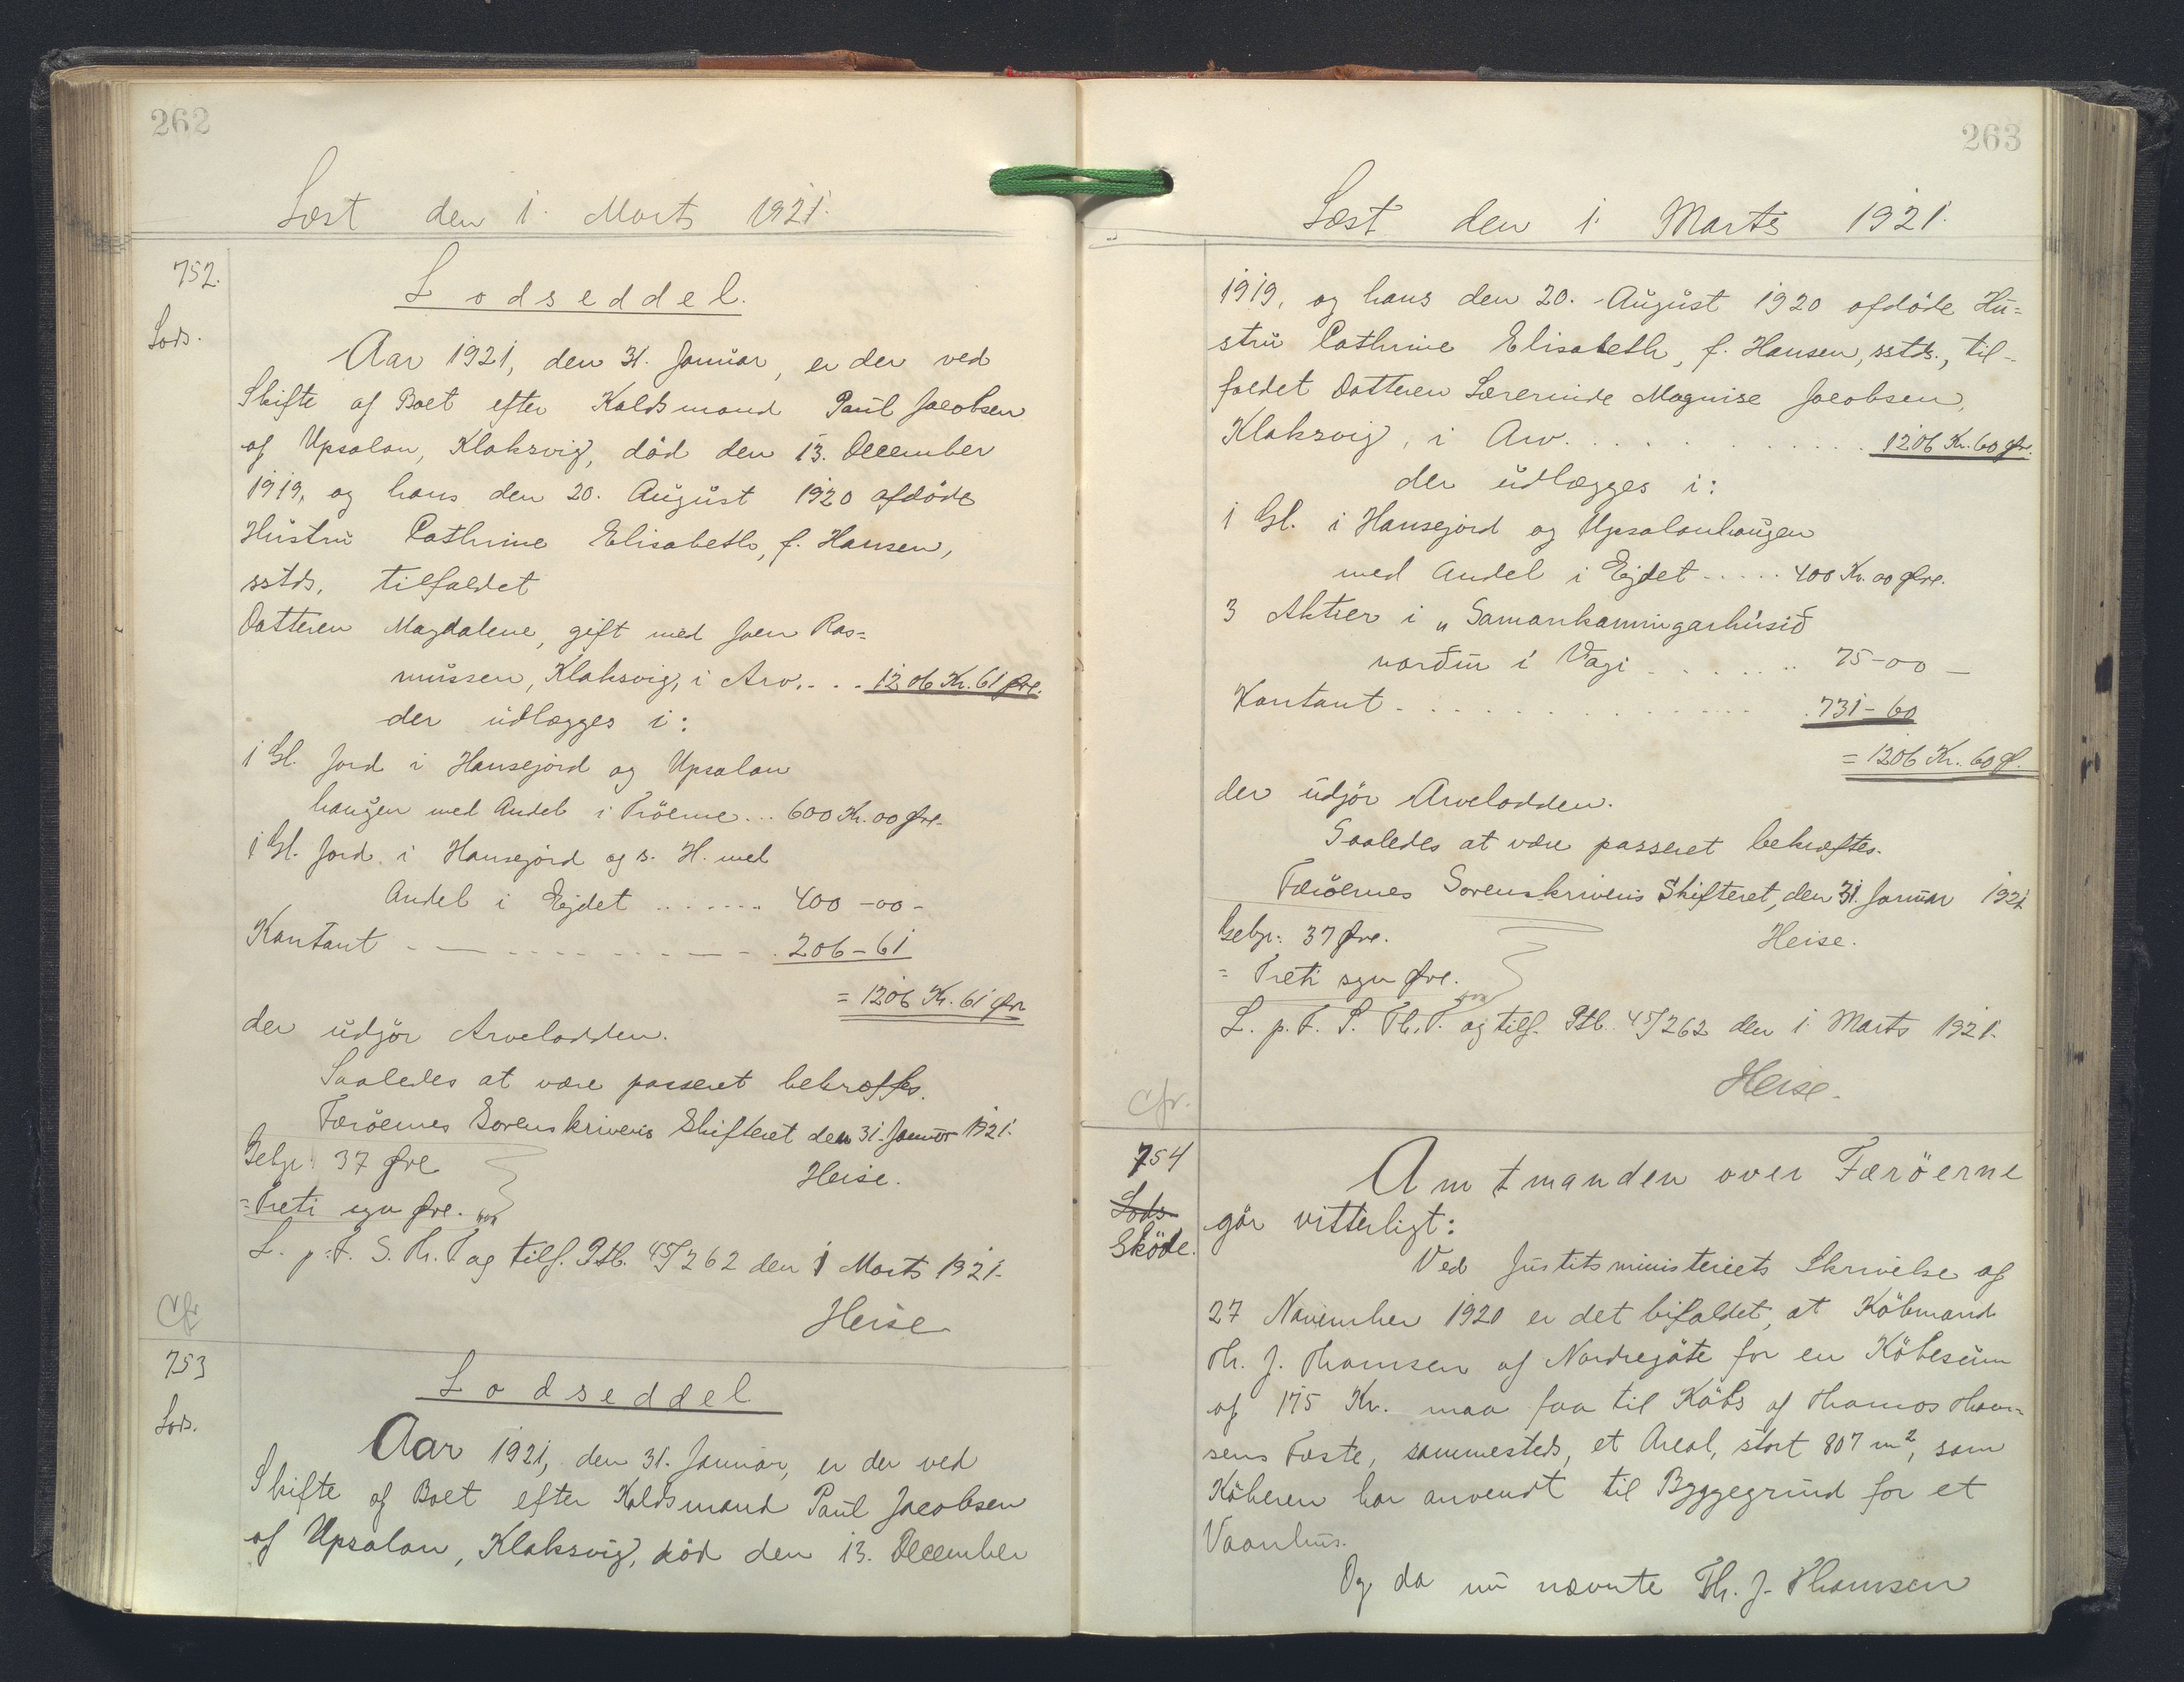 262
Læst den 1. Marts 1921.
752.
Lods.
Lodseddel.
Aar 1921, den 31. Januar, er der ved
Skifte af Boet efter Kaldsmand Paul Jacobsen
af Upsalon, Klaksvig, död den 13. December
1919, og hans den 20. August 1920 afdöde
Hustru Cathrine Elisabeth, f. Hansen,
sstds, tilfaldet
Datteren Magdalene, gift med Joen Ras=
mussen, Klaksvig, i Arv.... 1206 Kr. 61 Øre.
der udlægges i:
1 Gl. Jord i Hansejörd og Upsalon
haugen med Andel i Tröerne... 600 Kr. 00 Øre.
1 Gl. Jord i Hansejörd og s. H. med
Andel i Ejdet ....... 400 - 00 -
Kontant - - - - - - - - - - 206 - 61
= 1206 Kr. 61 Øre
der udgör Arvelodden.
Saaledes at være passeret bekræftes.
Færöernes Sorenskriveris Skifteret den 31. Januar 1921.
Gebyr: 37 Øre
Heise.
= Treti syv Øre.
L. p. F. S. Th. T. og tilf. Ptb. 45/262 den 1 Marts 1921.
Heise
Cfr
753
Lods.
Lodseddel
Aar 1921, den 31. Januar, er der ved
Skifte af Boet efter Kaldsmand Paul Jacobsen
af Upsalon, Klaksvig, död den 13. December
263
Læst den 1. Marts 1921.
1919, og hans den 20. August 1920 afdöde Hu=
stru Cathrine Elisabeth, f. Hansen, sstds., til-
faldet Datteren Lærerinde Magnise Jacobsen,
Klaksvig, i Arv. . . . . . . . . . . . 1206 Kr. 60 Øre.
der udlægges i:
1 Gl. i Hansejörd og Upsalonhaugen
med Andel i Ejdet ..... 400 Kr. 00 Øre.
3 Aktier i „Samankomingarhúsið
norðuri i Vági - . . . . . .. 75 - 00 -
Kontant - . . . . . . . . . . . . 731 - 60
= 1206 Kr. 60 Ø.
der udgör Arvelodden.
Saaledes at være passeret bekræftes.
Færöernes Sorenskriveris Skifteret, den 31. Januar 1921
Gebyr: 37 Øre.
Heise.
= Treti syv Øre.
L. p. F. S. Th. T. og tilf. Ptb. 45/262 den 1. Marts 1921.
Heise.
Cfr.
754
Lods
Sköde.
Amtmanden over Færöerne
gör vitterligt:
Ved Justitsministeriets Skrivelse af
27 November 1920 er det bifaldet, at Köbmand
Th. J. Thomsen af Nordregöte for en Köbesum
af 175 Kr. maa faa til Köbs af Thomas Thom-
sens Fæste, sammesteds, et Areal, stort 807 m², som
Köberen har anvendt til Byggegrund for et
Vaanhus.
Og da nu nævnte Th. J. Thomsen